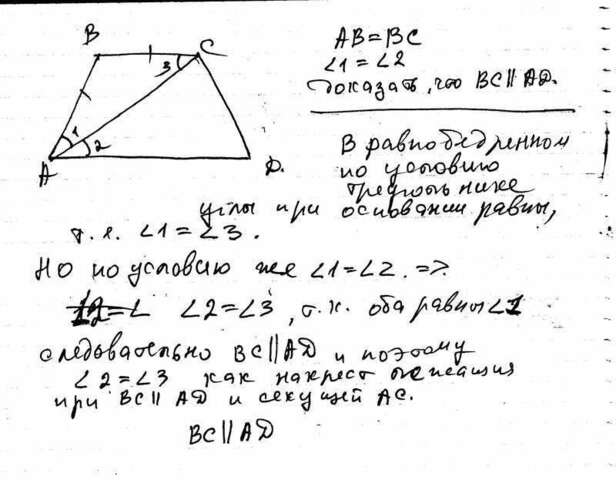 B
C
3
1
2
A
D.
AB=BC
∠1=∠2
доказать, что BC∥AD.
В равнобедренном
по условию
треугольнике
углы при основании равны,
т.е. ∠1=∠3.
Но по условию же ∠1=∠2. =>
∠2=∠3, т.к. оба равны ∠1
следовательно BC∥AD и поэтому
∠2=∠3 как накрест лежащия
при BC∥AD и секущей AC.
BC∥AD